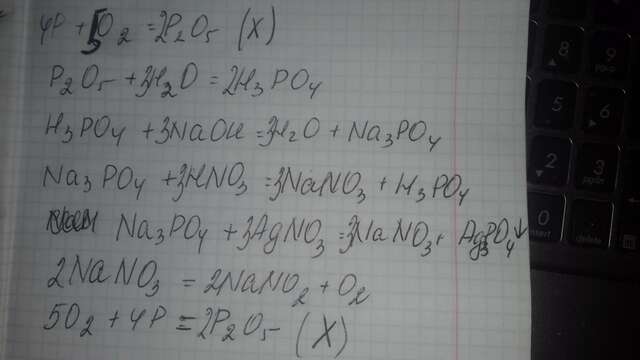 4P + 5O2 = 2P2O5 (X)
P2O5 + 3H2O = 2H3PO4
H3PO4 + 3NaOH = 3H2O + Na3PO4
Na3PO4 + 3HNO3 = 3NaNO3 + H3PO4
Na3PO4 + 3AgNO3 = 3NaNO3 + Ag3PO4↓
2NaNO3 = 2NaNO2 + O2
5O2 + 4P = 2P2O5 (X)
8
9
5
6
2
3
pgdn
0
insert
.
delete